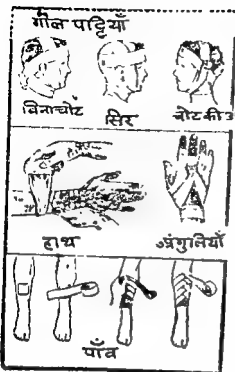 गोल पट्टियाँ
बिनाचोट सिर चोट की
हाथ अंगुलियाँ
पाँव